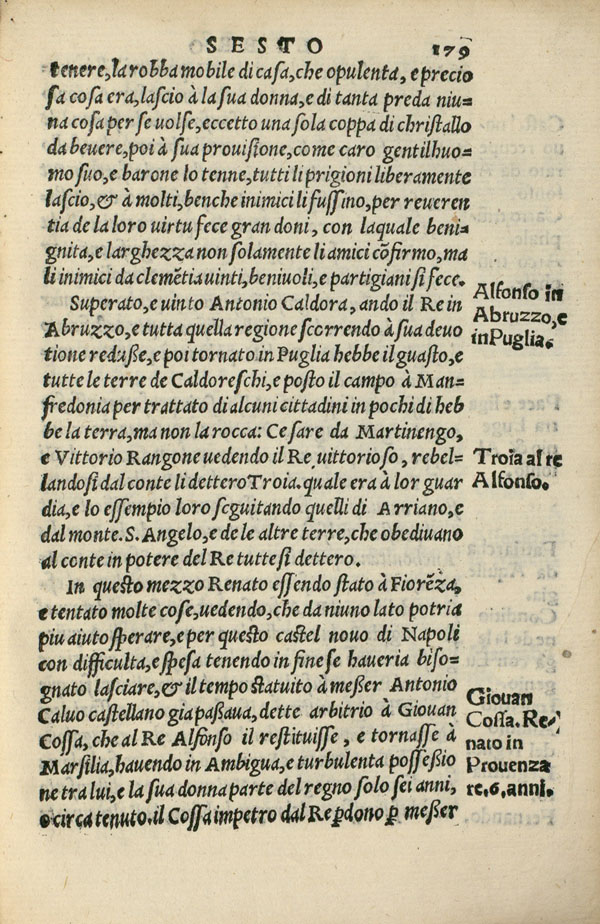 SESTO 179
tenere, la robba mobile di casa, che opulenta, e precio
sa cosa era, lascio à la sua donna, e di tanta preda niu=
na cosa per se uolse, eccetto una sola coppa di christallo
da beuere, poi à sua prouisione, come caro gentilhuo=
mo suo, e barone lo tenne, tutti li prigioni liberamente
lascio, & à molti, benche inimici li fussino, per reueren
tia de la loro uirtu fece gran doni, con laquale beni=
gnita, e larghezza non solamente li amici cõfirmo, ma
li inimici da clemẽtia uinti, beniuoli, e partigiani si fece.
Superato, e uinto Antonio Caldora, ando il Re in
Abruzzo, e tutta quella regione scorrendo à sua deuo
tione reduße, e poi tornato in Puglia hebbe il guasto, e
tutte le terre de Caldoreschi, e posto il campo à Man=
fredonia per trattato di alcuni cittadini in pochi dì heb
be la terra, ma non la rocca: Cesare da Martinengo,
e Vittorio Rangone uedendo il Re uittorioso, rebel=
landosi dal conte li dettero Troia. quale era à lor guar
dia, e lo essempio loro seguitando quelli di Arriano, e
dal monte. S. Angelo, e de le altre terre, che obediuano
al conte in potere del Re tutte si dettero.
In questo mezzo Renato essendo stato à Fiorẽza,
e tentato molte cose, uedendo, che da niuno lato potria
piu aiuto sperare, e per questo castel nouo di Napoli
con difficulta, e spesa tenendo in fine se haueria biso=
gnato lasciare, & il tempo statuito à meßer Antonio
Caluo castellano gia paßaua, dette arbitrio à Giouan
Cossa, che al Re Alfonso il restituisse, e tornasse à
Marsilia, hauendo in Ambigua, e turbulenta posseßio
ne tra lui, e la sua donna parte del regno solo sei anni,
o circa tenuto. il Cossa impetro dal Re ꝑdono ꝑ meßer
Alfonso in
Abruzzo, e
in Puglia.
Troia al re
Alfonso.
Giouan
Cossa. Re=
nato in
Prouenza
re. 6. anni.